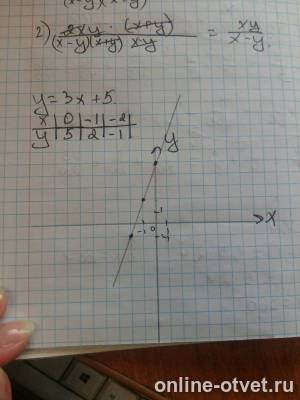 (x-y)(x+y)
2) 2xy · (x+y) / (x-y)(x+y) xy = xy / x-y
y = 3x + 5.
x | 0 | -1 | -2
y | 5 | 2 | -1
y
-1
-1 0
-1
x
online-otvet.ru